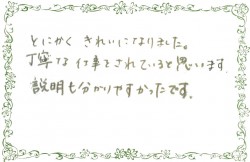 とにかく きれいになりました。
丁寧な仕事をされていると思います.
説明も分かりやすかったです。